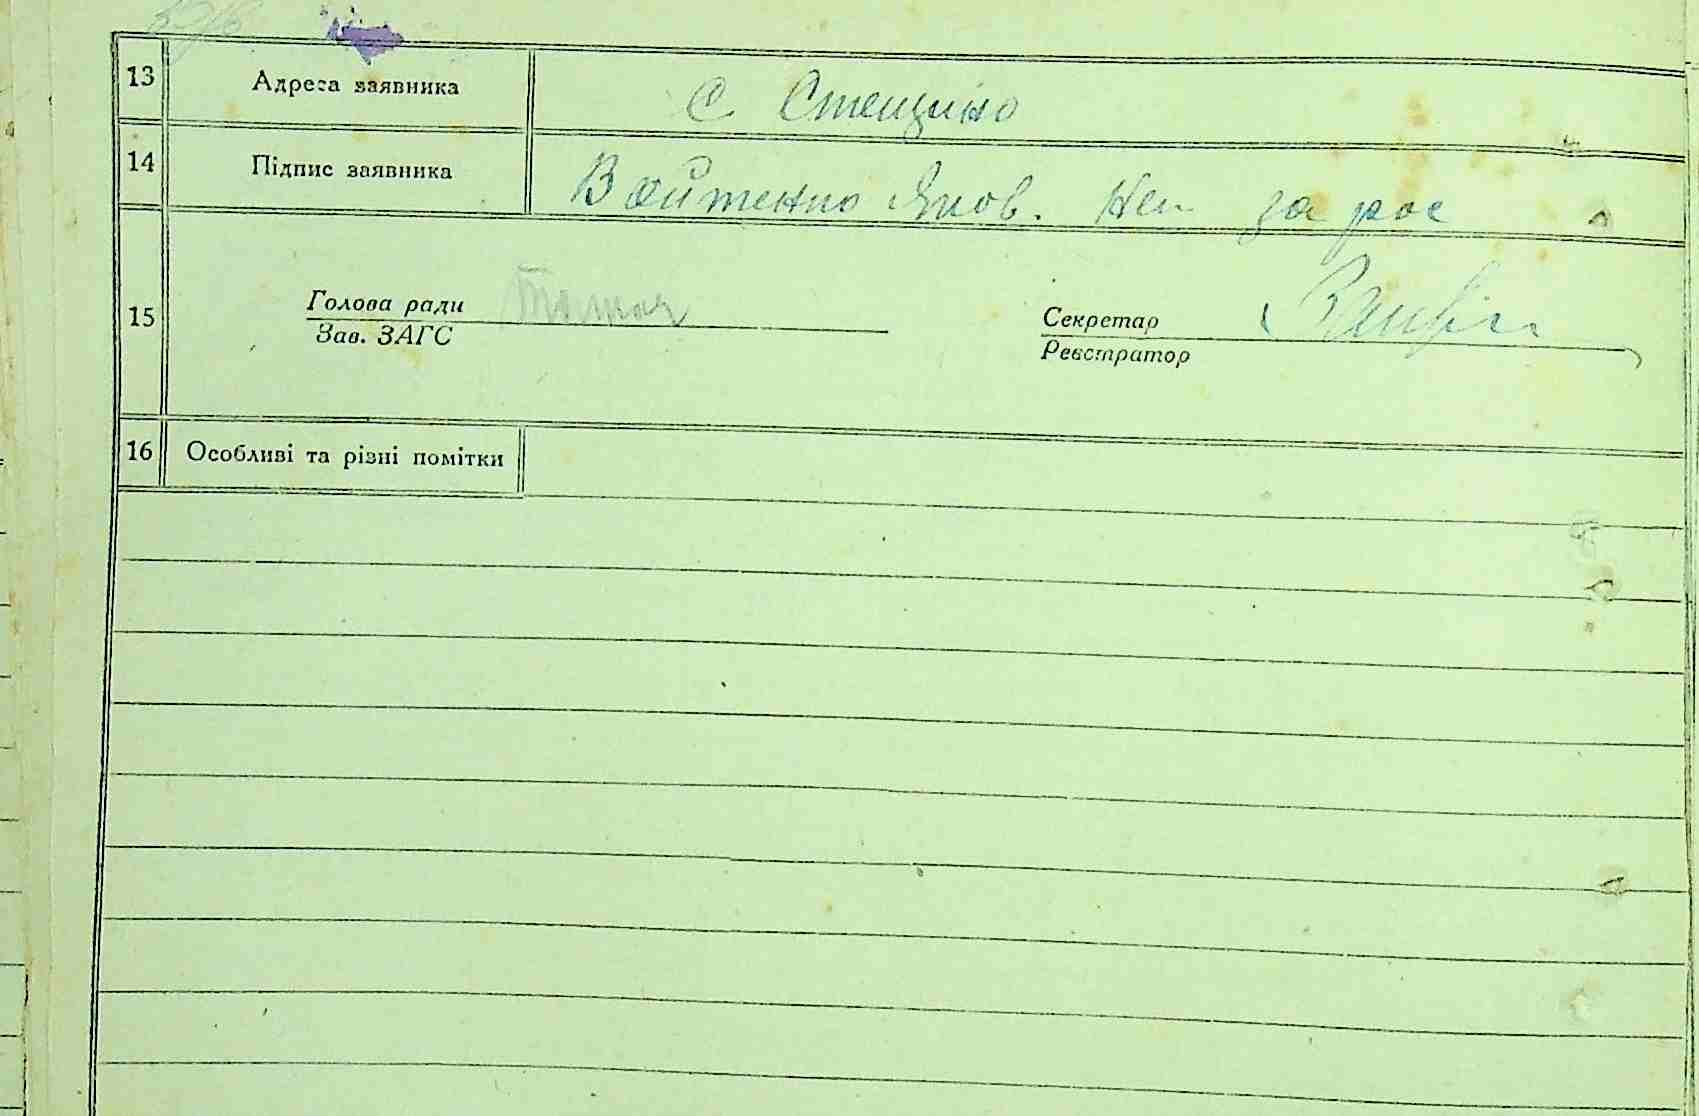 13 Адреса заявника С. Стецино
14 Підпис заявника Войтенко Яков. Неп за рос
15 Голова ради Секретар
Зав. ЗАГС Реєстратор
16 Особливі та різні помітки